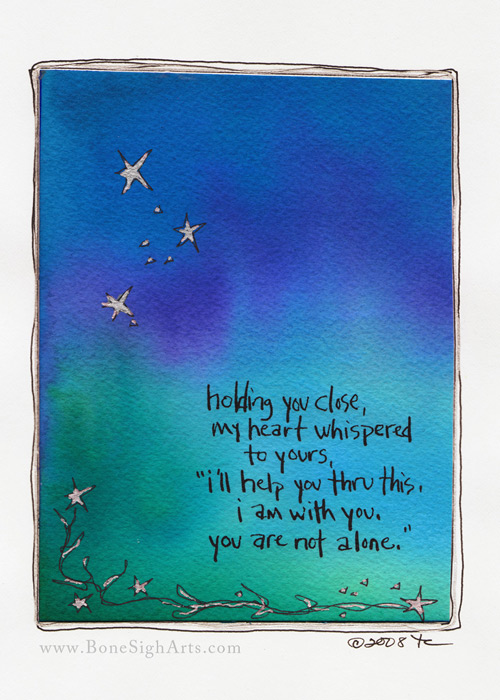 holding you close,
my heart whispered
to yours,
"i'll help you thru this.
i am with you.
you are not alone."
©2008
www.BoneSighArts.com